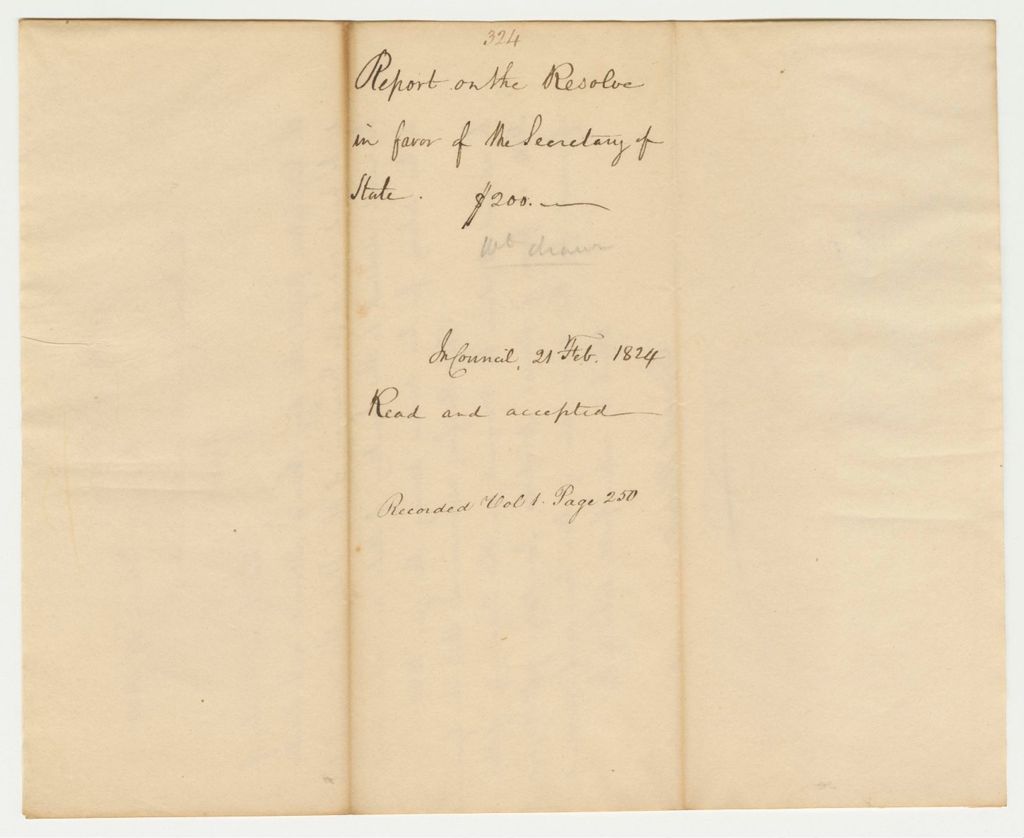 324
Report on the Resolve
in favor of the Secretary of
State. $200.—
drawn
In Council, 21 Feb. 1824
Read and accepted
Recorded Vol 1. Page 250